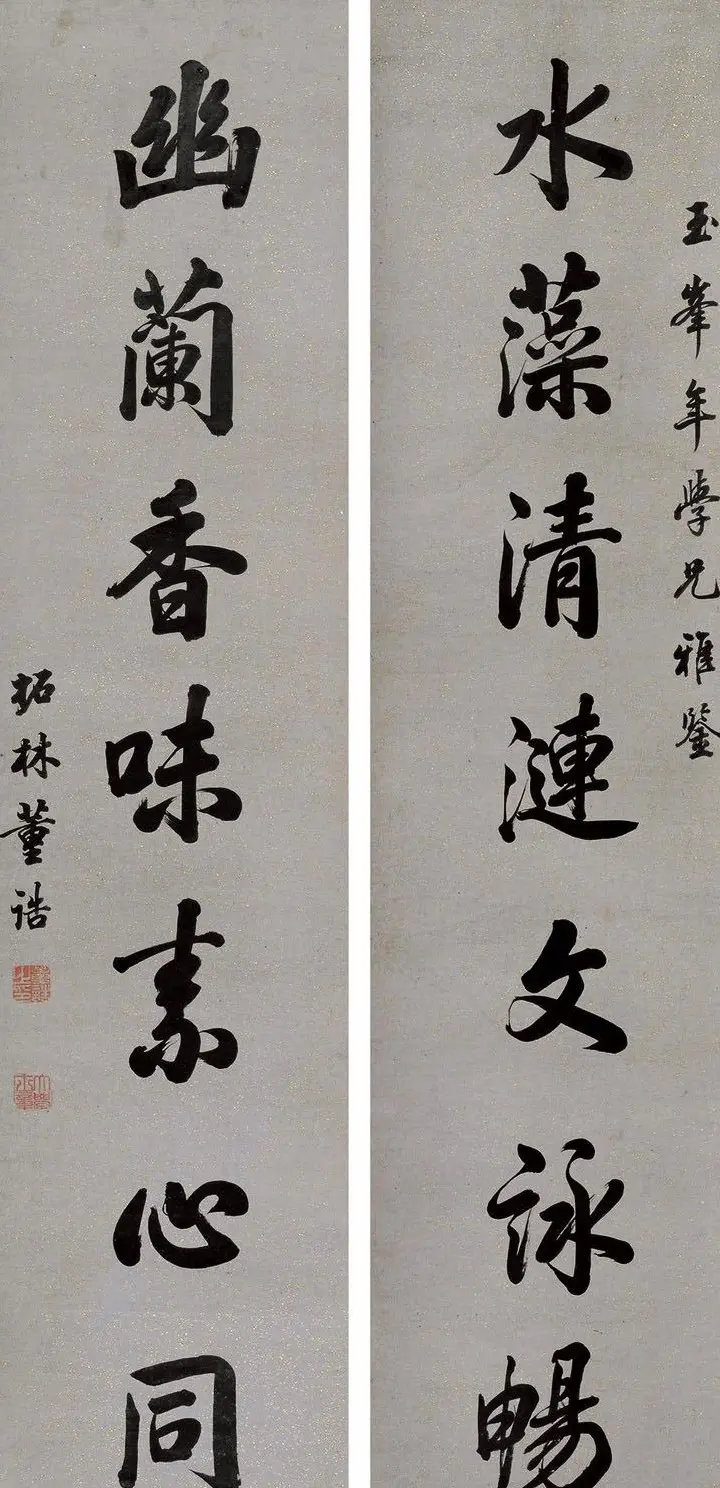 玉峯年學兄雅鑒
水藻清漣文詠暢
幽蘭香味素心同
柘林董誥